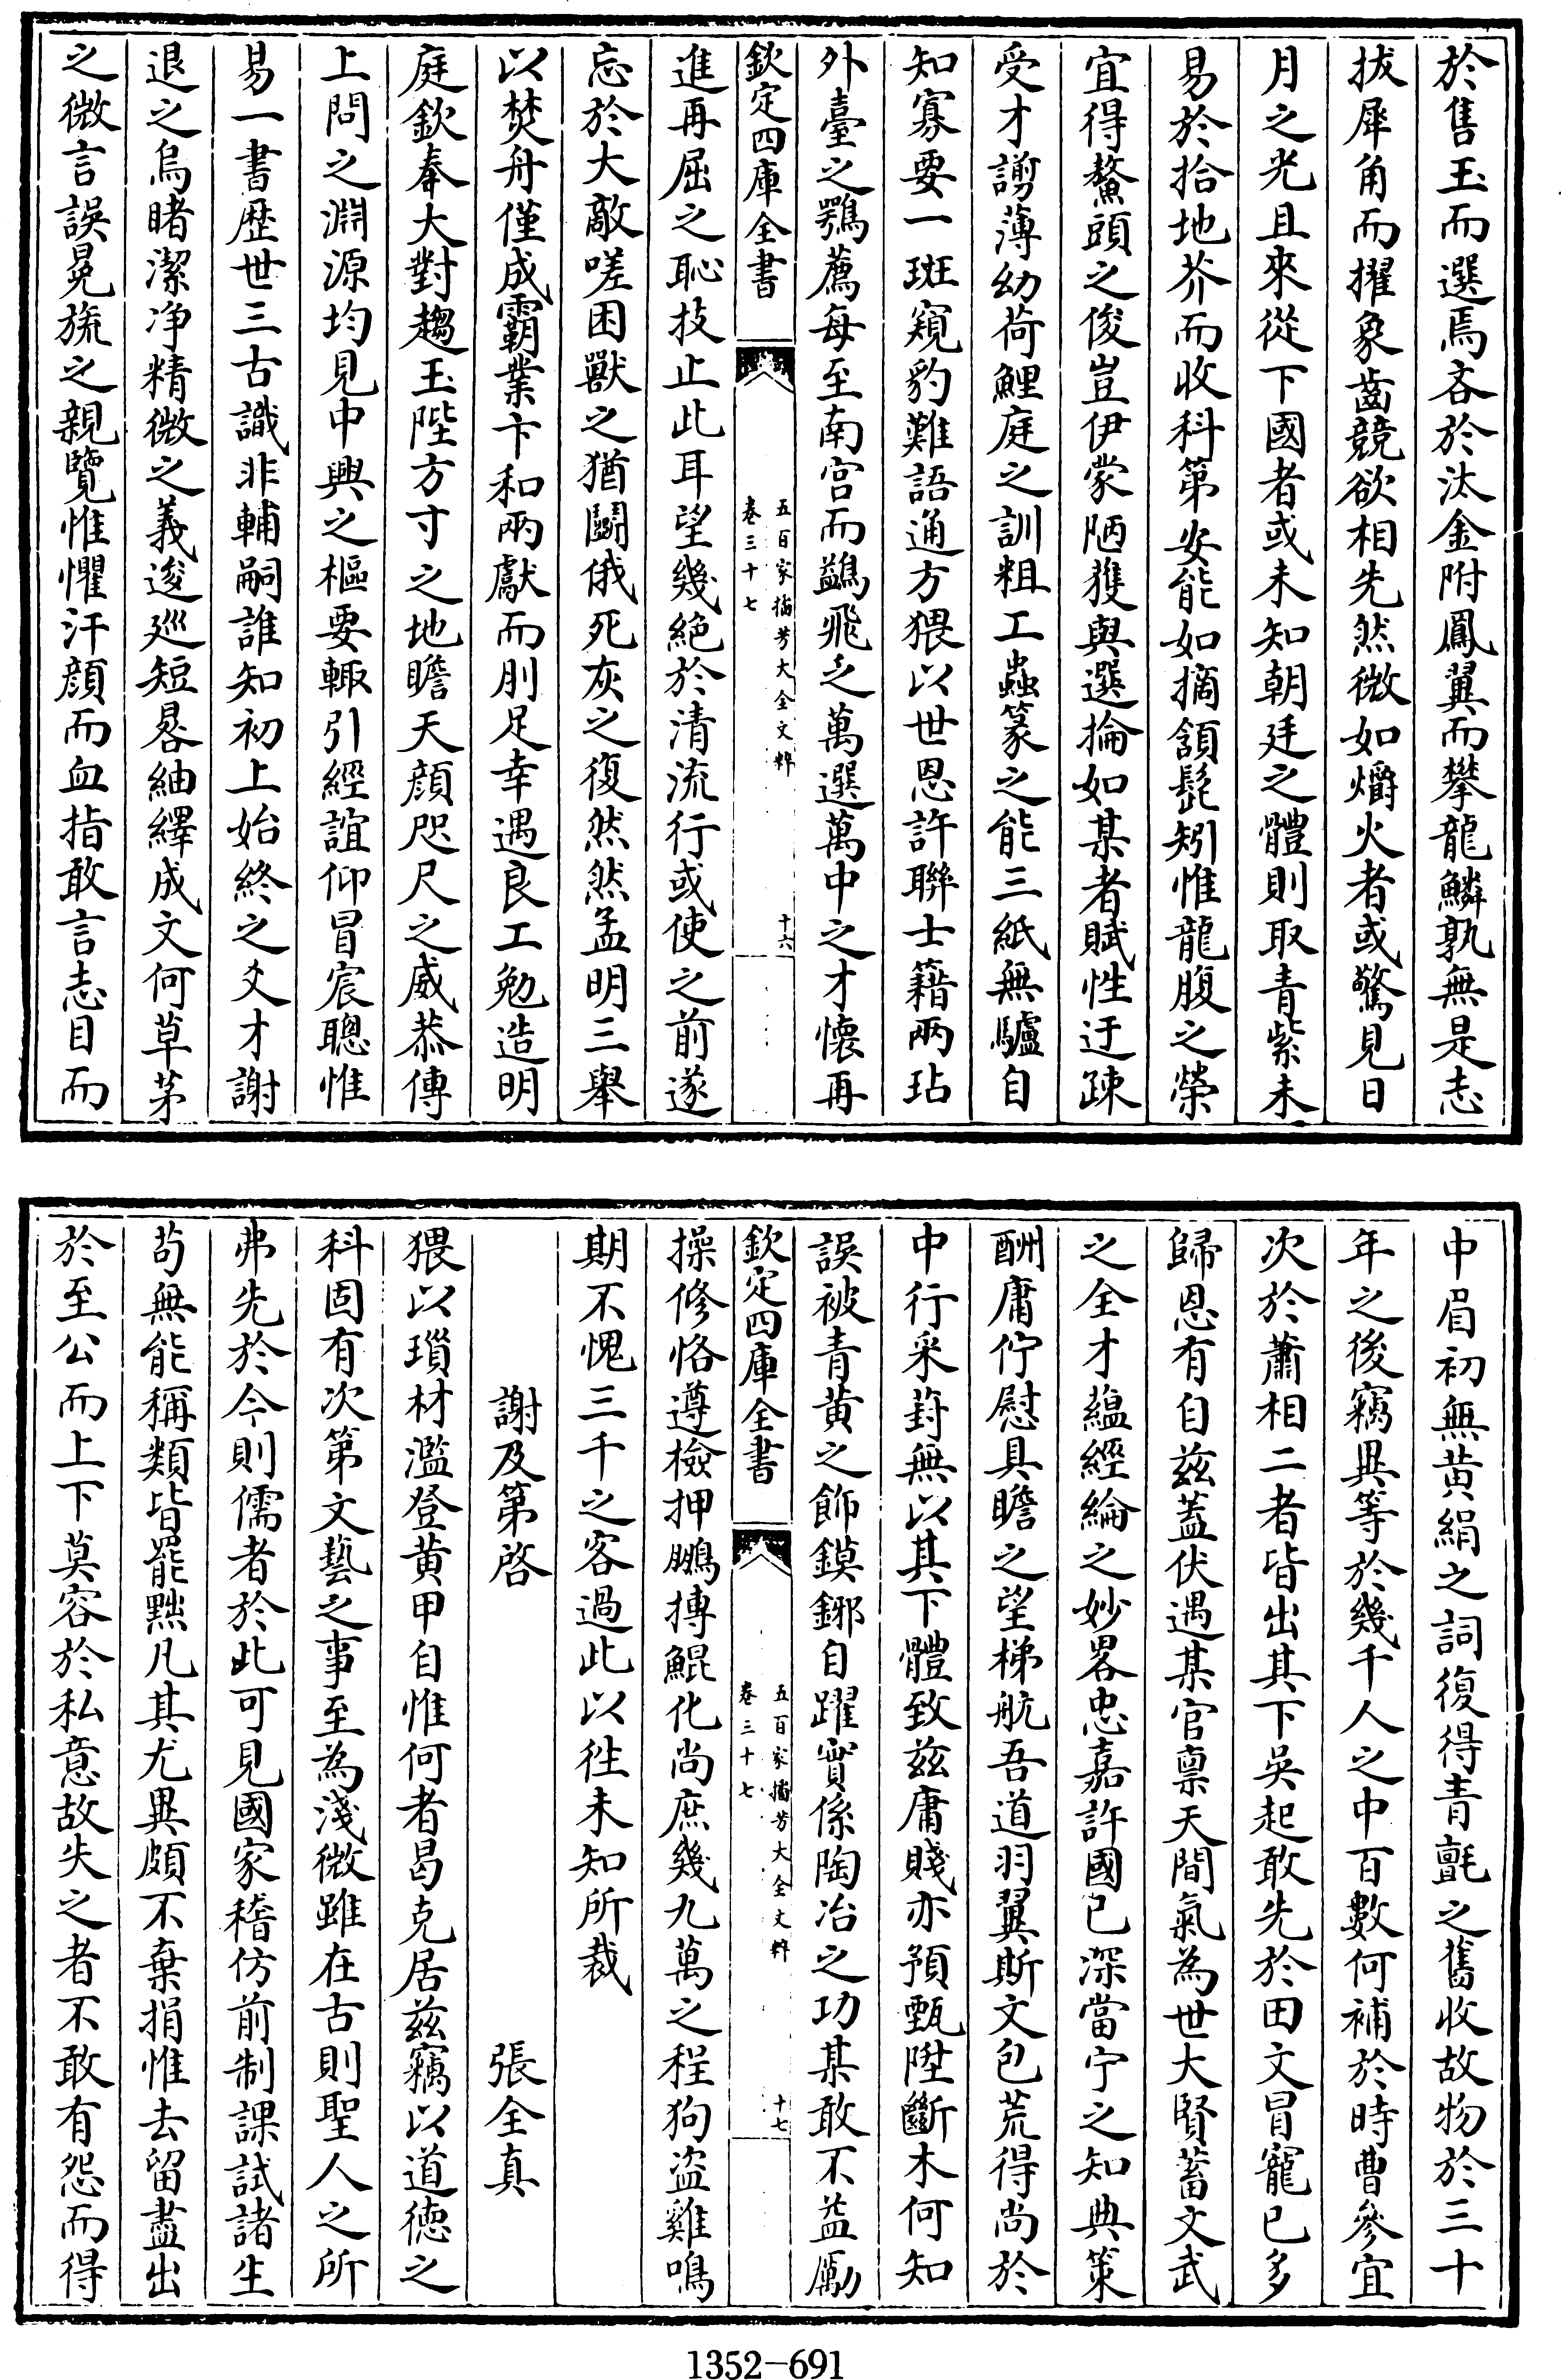 於售玉而選焉吝於汰金附鳳翼而攀龍鱗孰無是志
拔犀角而擢象齒競欲相先然微如爝火者或驚見日
月之光且來從下國者或未知朝廷之體則取青紫未
易於拾地芥而收科第安能如摘頷髭矧惟龍腹之榮
宜得鰲頭之俊豈伊蒙陋獲與選掄如某者賦性迂疎
受才謭薄幼荷鯉庭之訓粗工蟲篆之能三紙無驢自
知寡要一斑窺豹難語通方猥以世恩許聯士籍兩玷
外臺之鶚薦每至南宫而鷁飛乏萬選萬中之才懷再
欽定四庫全書
五百家播芳大全文粹
卷三十七
十六
進再屈之恥技止此耳望幾絶於清流行或使之前遂
忘於大敵嗟困獸之猶鬭俄死灰之復然然孟明三舉
以焚舟僅成霸業卞和兩獻而刖足幸遇良工勉造明
庭欽奉大對趨玉陛方寸之地瞻天顔咫尺之威恭傳
上問之淵源均見中興之樞要輙引經誼仰冒宸聰惟
易一書歴世三古識非輔嗣誰知初上始終之爻才謝
退之烏睹潔净精微之義逡廵短晷紬繹成文何草茅
之微言誤冕旒之親覽惟懼汗顔而血指敢言志目而
中眉初無黄絹之詞復得青氊之舊收故物於三十
年之後竊異等於幾千人之中百數何補於時曹參宜
次於蕭相二者皆出其下吳起敢先於田文冒寵已多
歸恩有自兹蓋伏遇某官禀天間氣為世大賢蓄文武
之全才藴經綸之妙畧忠嘉許國已深當宁之知典策
酬庸佇慰具瞻之望梯航吾道羽翼斯文包荒得尚於
中行采葑無以其下體致兹庸賤亦預甄陞斷木何知
誤被青黄之飾鏌鋣自躍實係陶冶之功某敢不益勵
欽定四庫全書
五百家播芳大全文粹
卷三十七
十七
操修恪遵檢押鵬摶鯤化尚庶幾九萬之程狗盗雞鳴
期不愧三千之客過此以徃未知所裁
謝及第啓　張全真
猥以瑣材濫登黄甲自惟何者曷克居兹竊以道徳之
科固有次第文藝之事至為淺微雖在古則聖人之所
弗先於今則儒者於此可見國家稽仿前制課試諸生
苟無能稱類皆罷黜凡其尤異頗不棄捐惟去留盡出
於至公而上下莫容於私意故失之者不敢有怨而得
1352-691